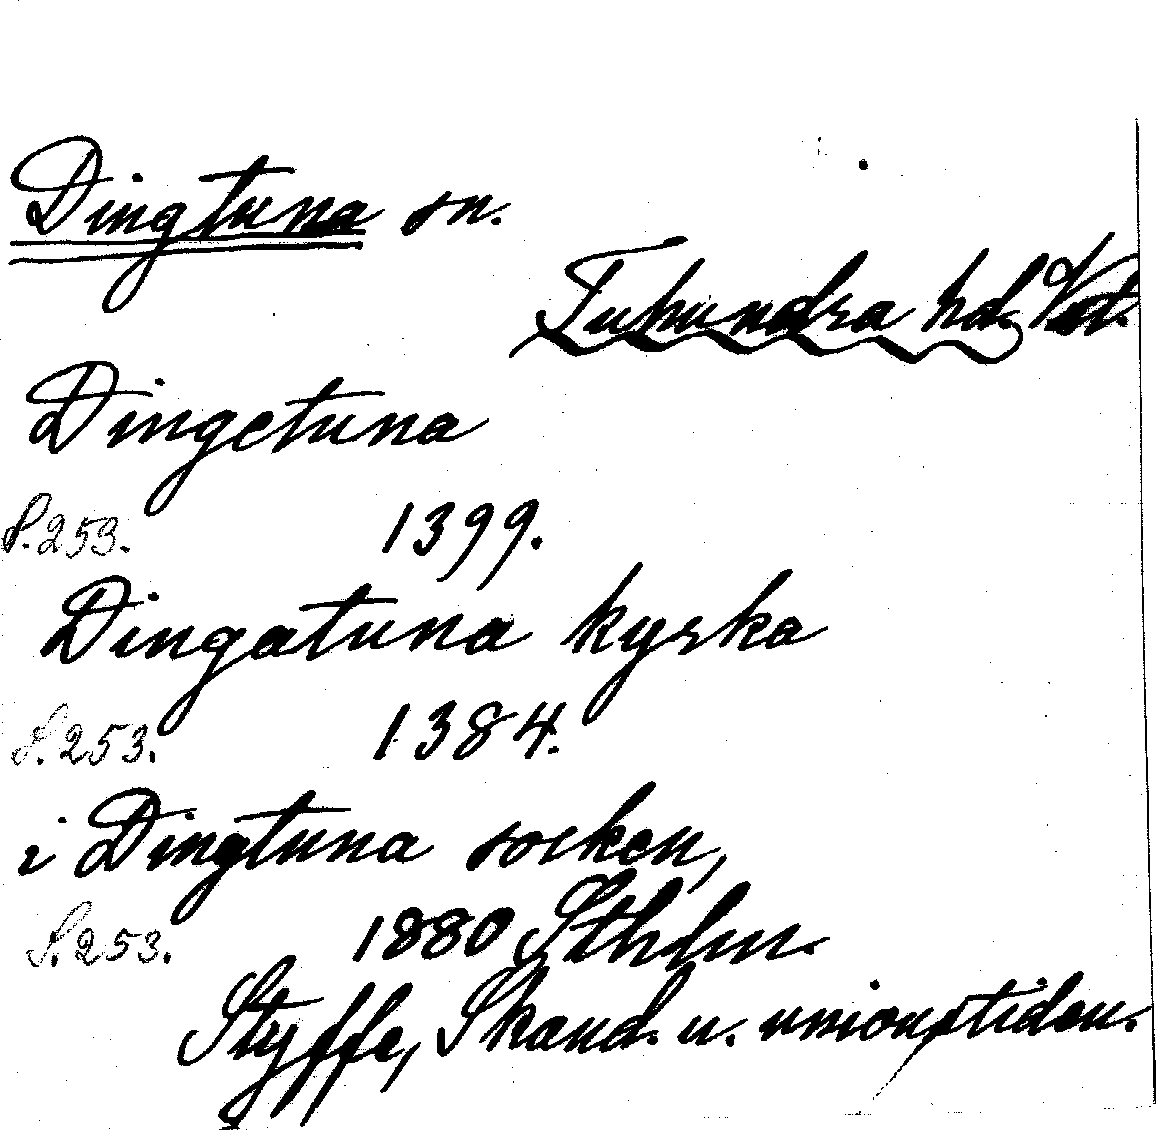 Dingtuna sn.
Tuhundra hd. Vst.
Dingetuna
S. 253. 1399.
Dingatuna kyrka
S. 253. 1384.
i Dingtuna socken,
S. 253. 1880 Sthlm.
Styffe, Skand. u. unionstiden.